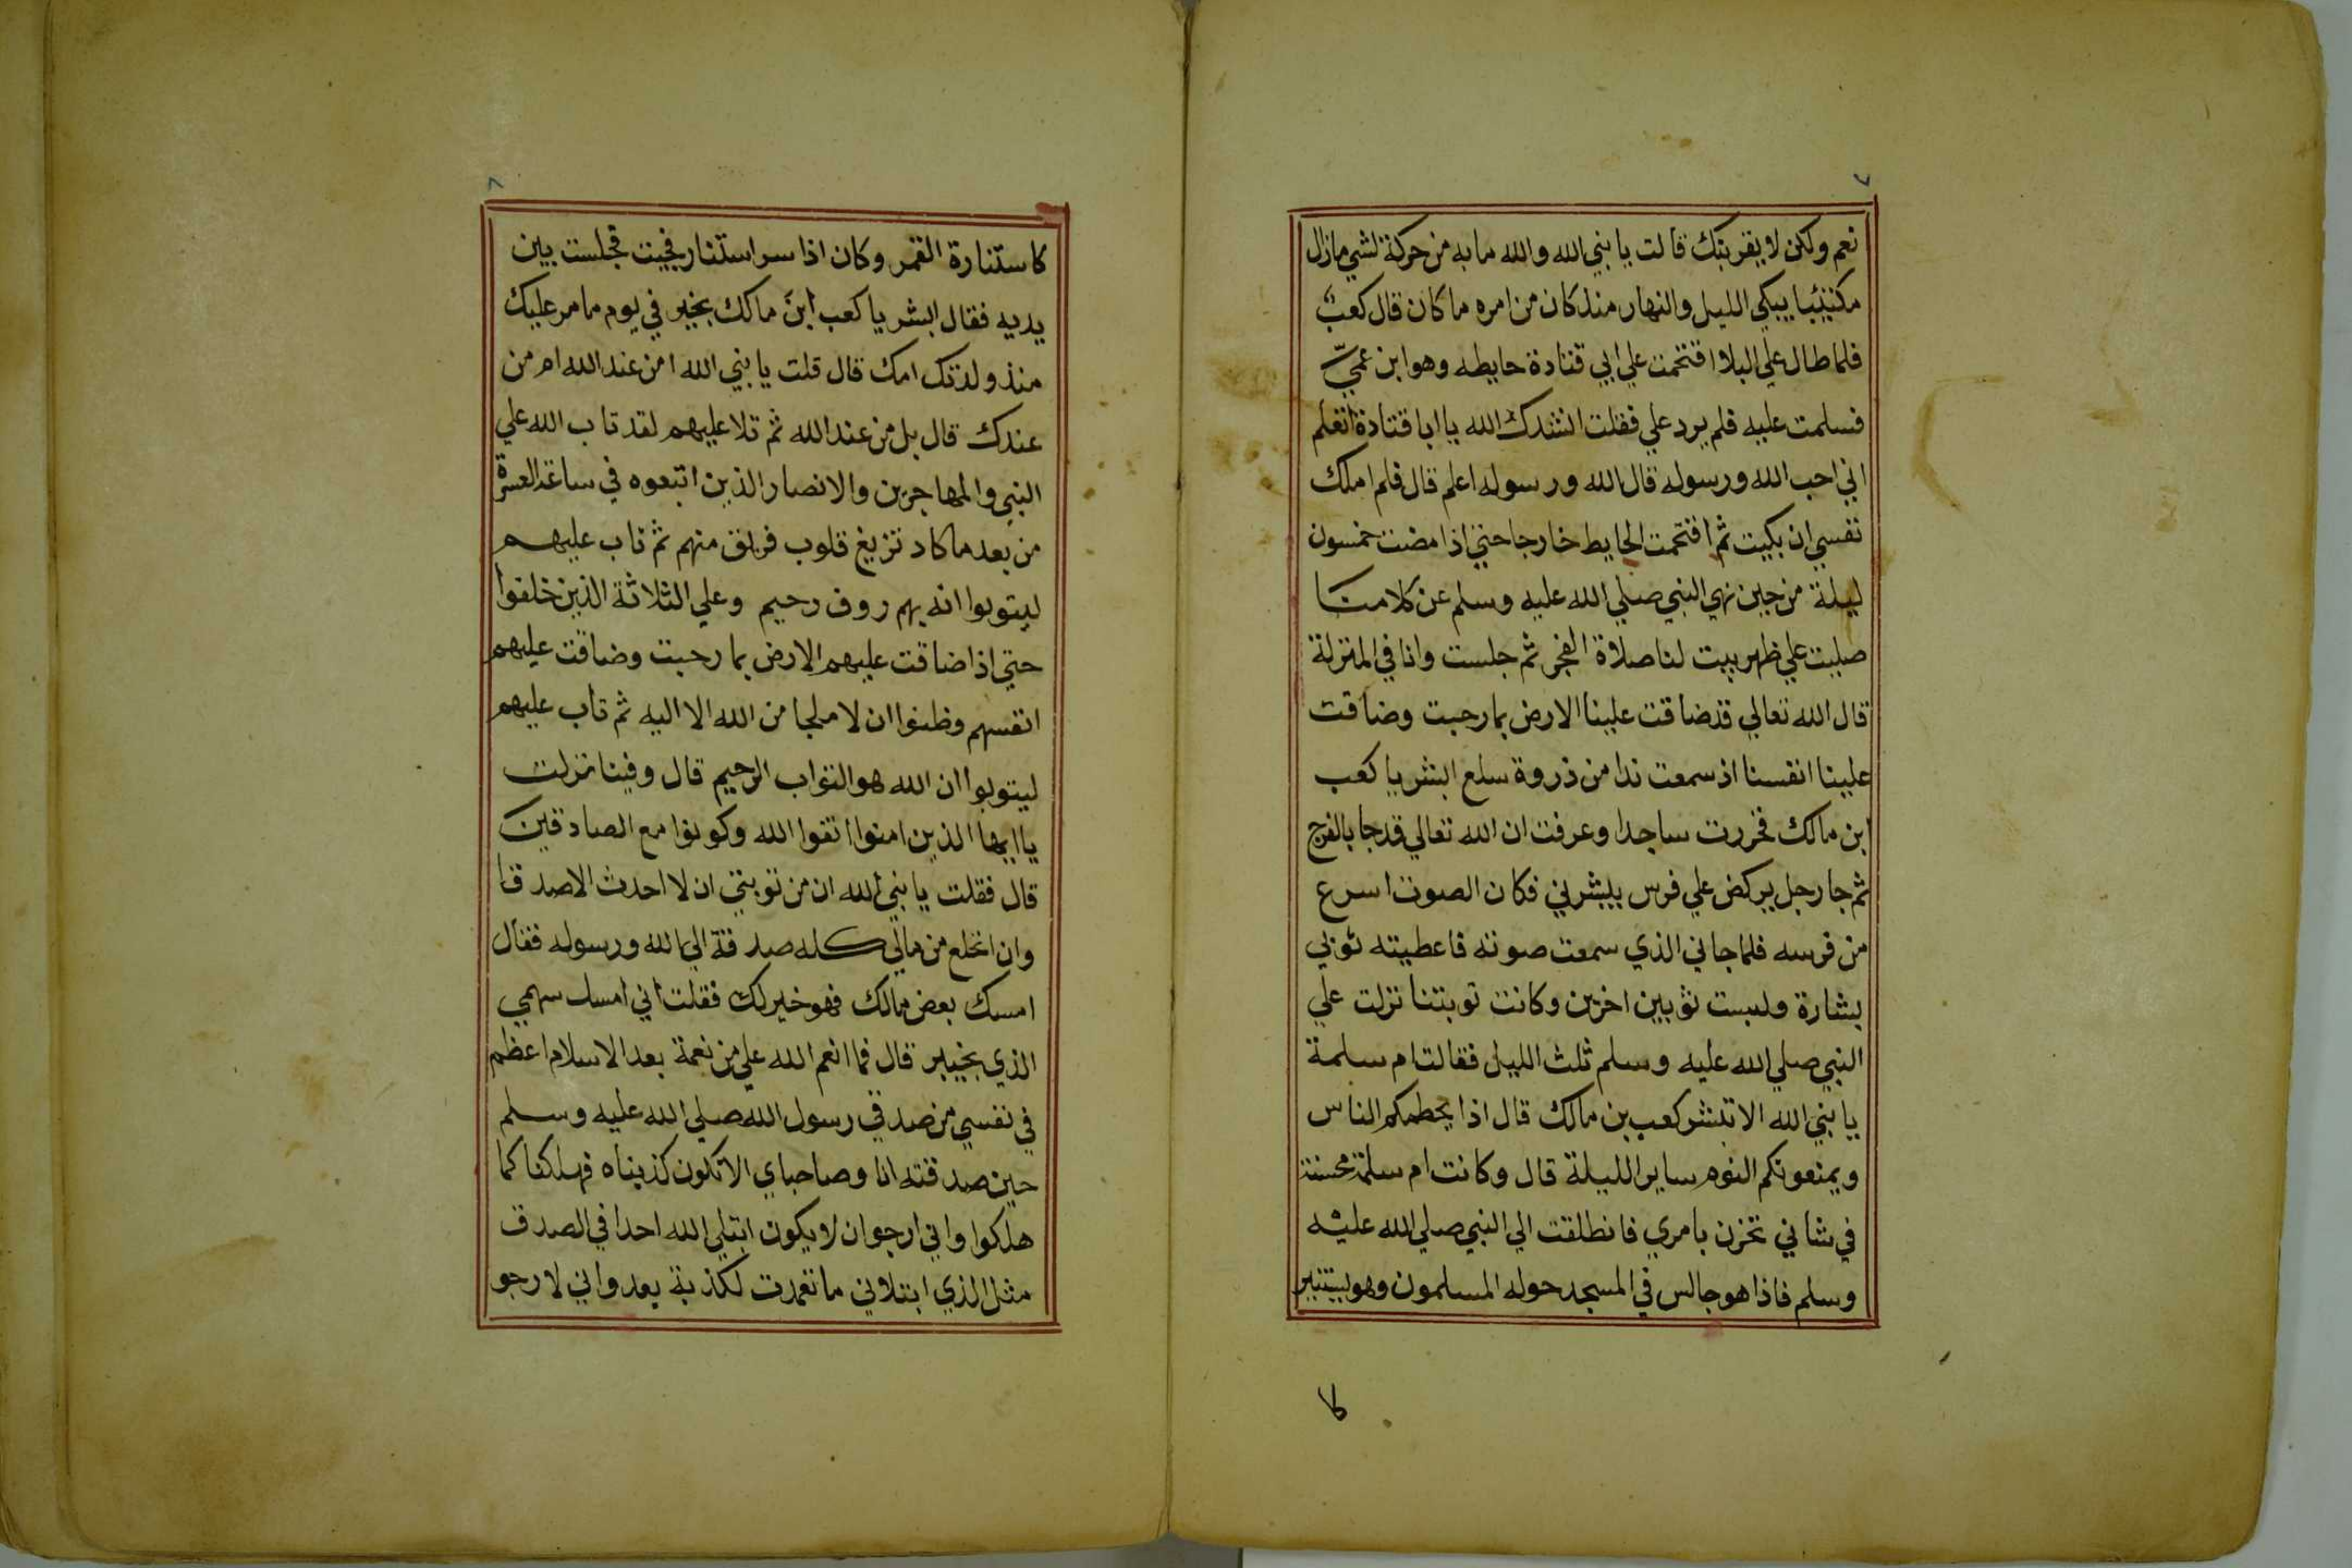 ٧
نعم ولكن لا يقربنك قالت يا نبي الله والله ما به من حركة لشي مازال
مكتئبا يبكي الليل والنهار منذ كان من امره ما كان قال كعب
فلما طال علي البلا اقتحمت علي ابي قتادة حايطه وهو ابن عمي
فسلمت عليه فلم يرد علي فقلت انشدك الله يا ابا قتادة اتعلم
اني احب الله ورسوله قال الله ورسوله اعلم قال فلم املك
نفسي ان بكيت ثم اقتحمت الحايط خارجا حتي اذا مضت خمسون
ليلة من حين نهي النبي صلي الله عليه وسلم عن كلامنا
صليت علي ظهر بيت لنا صلاة الفجر ثم جلست وانا في المنزلة
قال الله تعالي قد ضاقت علينا الارض بما رحبت وضاقت
علينا انفسنا اذ سمعت ندا من ذروة سلع ابشر يا كعب
ابن مالك فخررت ساجدا وعرفت ان الله تعالي قد جا بالفرج
ثم جا رجل يركض علي فرس يبشرني فكان الصوت اسرع
من فرسه فلما جاني الذي سمعت صوته فاعطيته ثوبي
بشارة ولبست ثوبين اخرين وكانت توبتنا نزلت علي
النبي صلي الله عليه وسلم ثلث الليل فقالت ام سلمة
يا نبي الله الا تبشر كعب بن مالك قال اذا يحطمكم الناس
ويمنعونكم النوم ساير الليلة قال وكانت ام سلمة محسنة
في شاني تحزن بامري فانطلقت الي النبي صلي الله عليه
وسلم فاذا هو جالس في المسجد حوله المسلمون وهو يستنير
كا
٨
كاستنارة القمر وكان اذا سر استنار فجيت فجلست بين
يديه فقال ابشر يا كعب ابن مالك بخير في يوم ما مر عليك
منذ ولدتك امك قال قلت يا نبي الله امن عند الله ام من
عندك قال بل من عند الله ثم تلا عليهم لقد تاب الله علي
النبي والمهاجرين والانصار الذين اتبعوه في ساعة العسرة
من بعد ما كاد تزيغ قلوب فريق منهم ثم تاب عليهم
ليتوبوا انه بهم روف رحيم وعلي الثلاثة الذين خلفوا
حتي اذا ضاقت عليهم الارض بما رحبت وضاقت عليهم
انفسهم وظنوا ان لا ملجا من الله الا اليه ثم تاب عليهم
ليتوبوا ان الله هو التواب الرحيم قال وفينا نزلت
يا ايها الذين امنوا اتقوا الله وكونوا مع الصادقين
قال فقلت يا نبي الله ان من توبتي ان لا احدث الا صدقا
وان انخلع من مالي كله صدقة الي الله ورسوله فقال
امسك بعض مالك فهو خير لك فقلت اني امسك سهمي
الذي بخيبر قال فما انعم الله علي من نعمة بعد الاسلام اعظم
في نفسي من صدقي رسول الله صلي الله عليه وسلم
حين صدقته انا وصاحباي الا نكون كذبناه فهلكنا كما
هلكوا واني ارجو ان لا يكون ابتلي الله احدا في الصدق
مثل الذي ابتلاني ما تعمدت لكذبة بعد واني لارجو